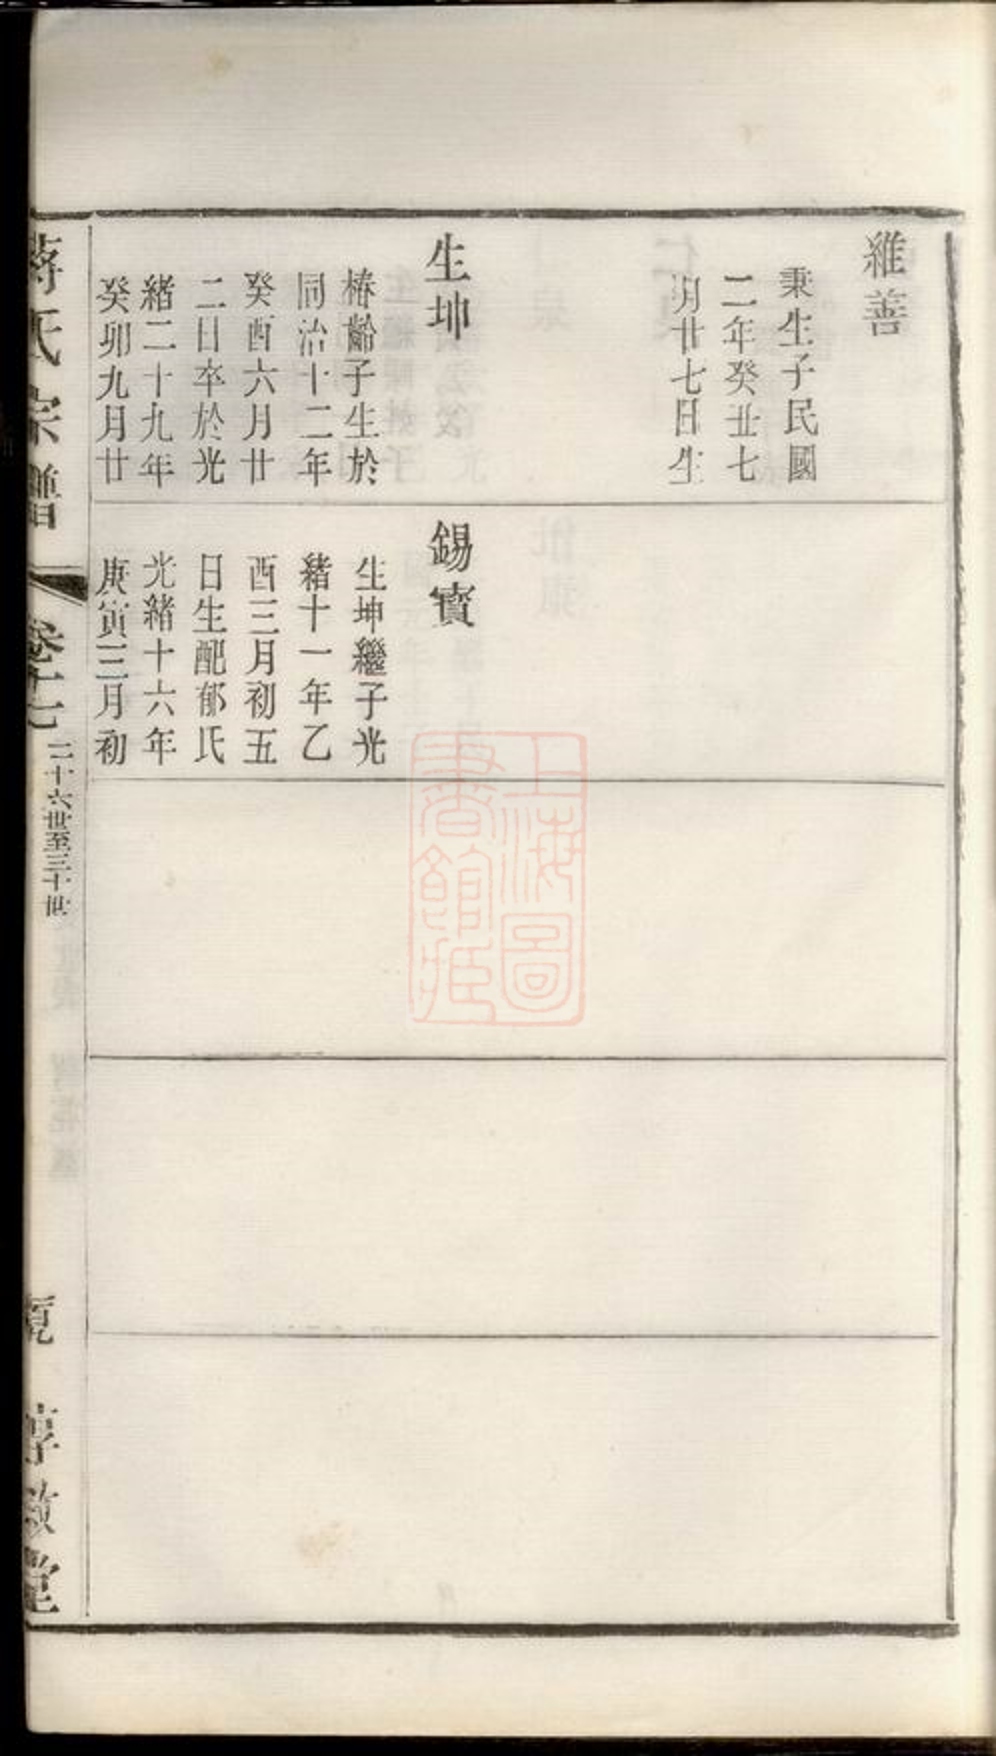 維善
秉生子民國
二年癸丑七
月廿七日生
生坤
椿齡子生於
同治十二年
癸酉六月廿
二日卒於光
緒二十九年
癸卯九月廿
錫寶
生坤繼子光
緒十一年乙
酉三月初五
日生配郁氏
光緒十六年
庚寅三月初
蔣氏宗譜
卷十七
二十六世至三十世
敦堂
上海圖
書館藏